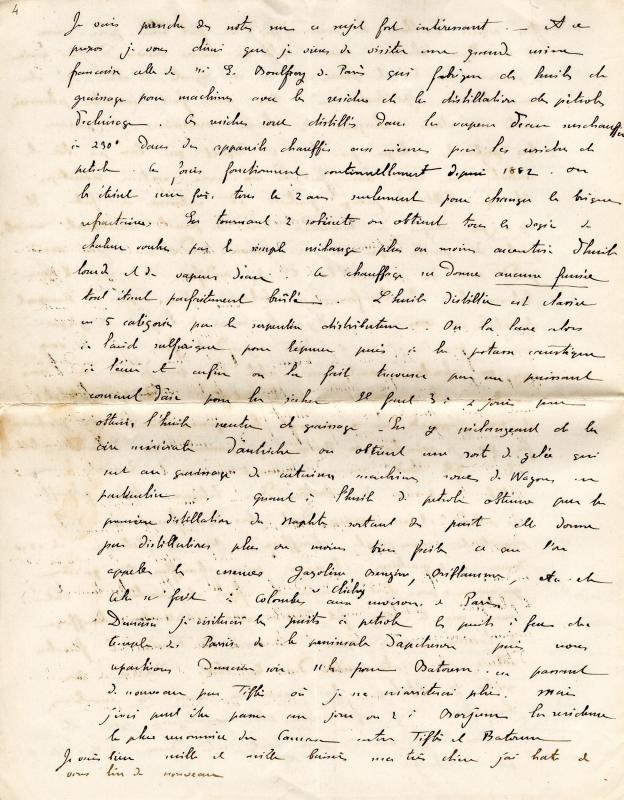 4
Je vais prendre des notes sur ce sujet fort intéressant. — A ce
propos je vous dirai que je viens de visiter une grande usine
française celle de Mr E. de Paris qui fabrique des huiles de
graissage pour machines avec les résidus de la distillation des pétroles
d'éclairage. Ces résidus sont distillés dans la vapeur d'eau surchauffée
à 290° dans des appareils chauffés eux mêmes par les résidus de
pétrole. Ce fonctionnent continuellement depuis 1882. on
les éteint une fois tous les 2 ans seulement pour changer les briques
réfractaires. En tournant 2 robinets on obtient tous les degrés de
chaleur voulus par le simple mélange plus ou moins accentué d'huile
lourde et de vapeur d'eau. Ce chauffage ne donne aucune fumée
tout étant parfaitement brûlé. L'huile distillée est classée
en 5 catégories par le serpentin distributeur. On la lave alors
à l'acide sulfurique pour l'épurer puis à la potasse caustique
à l'eau et enfin on la fait traverser par un puissant
courant d'air pour la sécher. Il faut 3 à 4 jours pour
obtenir l'huile neutre de graissage. En y mélangeant de la
cire minérale d'Autriche on obtient une sorte de gelée qui
sert au graissage de certaines machines, roues de Wagons en
particulier. Quant à l'huile de pétrole obtenue par la
première distillation du Naphte sortant des puits elle donne
par distillations plus ou moins bien faites ce que l'on
appelle les essences Gazoline Benzine, Oriflamme, etc etc
Cela se fait à Colombes Clichy aux environs de Paris.
Demain je visiterai les puits à pétrole les puits à feu des
temples des Parsis de la péninsule d'Apchéron puis nous
repartirons Demain soir 11h pour Batoum en passant
de nouveau par Tiflis où je ne m'arrêterai plus. Mais
j'irai peut être passer un jour ou 2 à Borjom la résidence
la plus renommée du Caucase entre Tiflis et Batoum
Je vous mille et mille baisers ma très chère j'ai hâte de
vous de nouveau